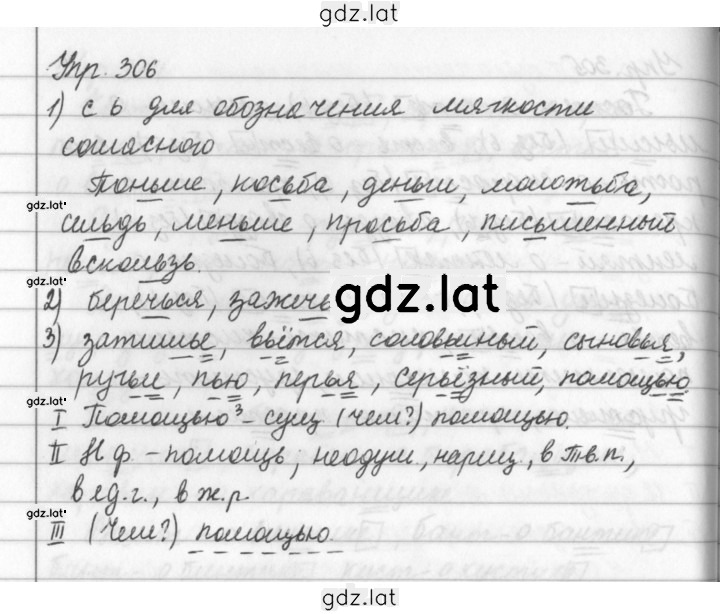 gdz.lat
Упр. 306
1) с ь для обозначения мягкости
согласного
Тоньше, косьба, деньги, молотьба,
gdz.lat
сельдь, меньше, просьба, письменный
вскользь.
gdz.lat
2) беречься, зажечь
gdz.lat
3) затишье, вьётся, соловьиный, сыновья,
ручьи, пью, перья, серьёзный, помощью
gdz.lat
I Помощью³ – сущ (чем?) помощью.
II Н ф. – помощь, неодуш, нариц, в Тв.п.,
gdz.lat
в ед.г., в ж.р.
gdz.lat
III (Чем?) помощью.
gdz.lat